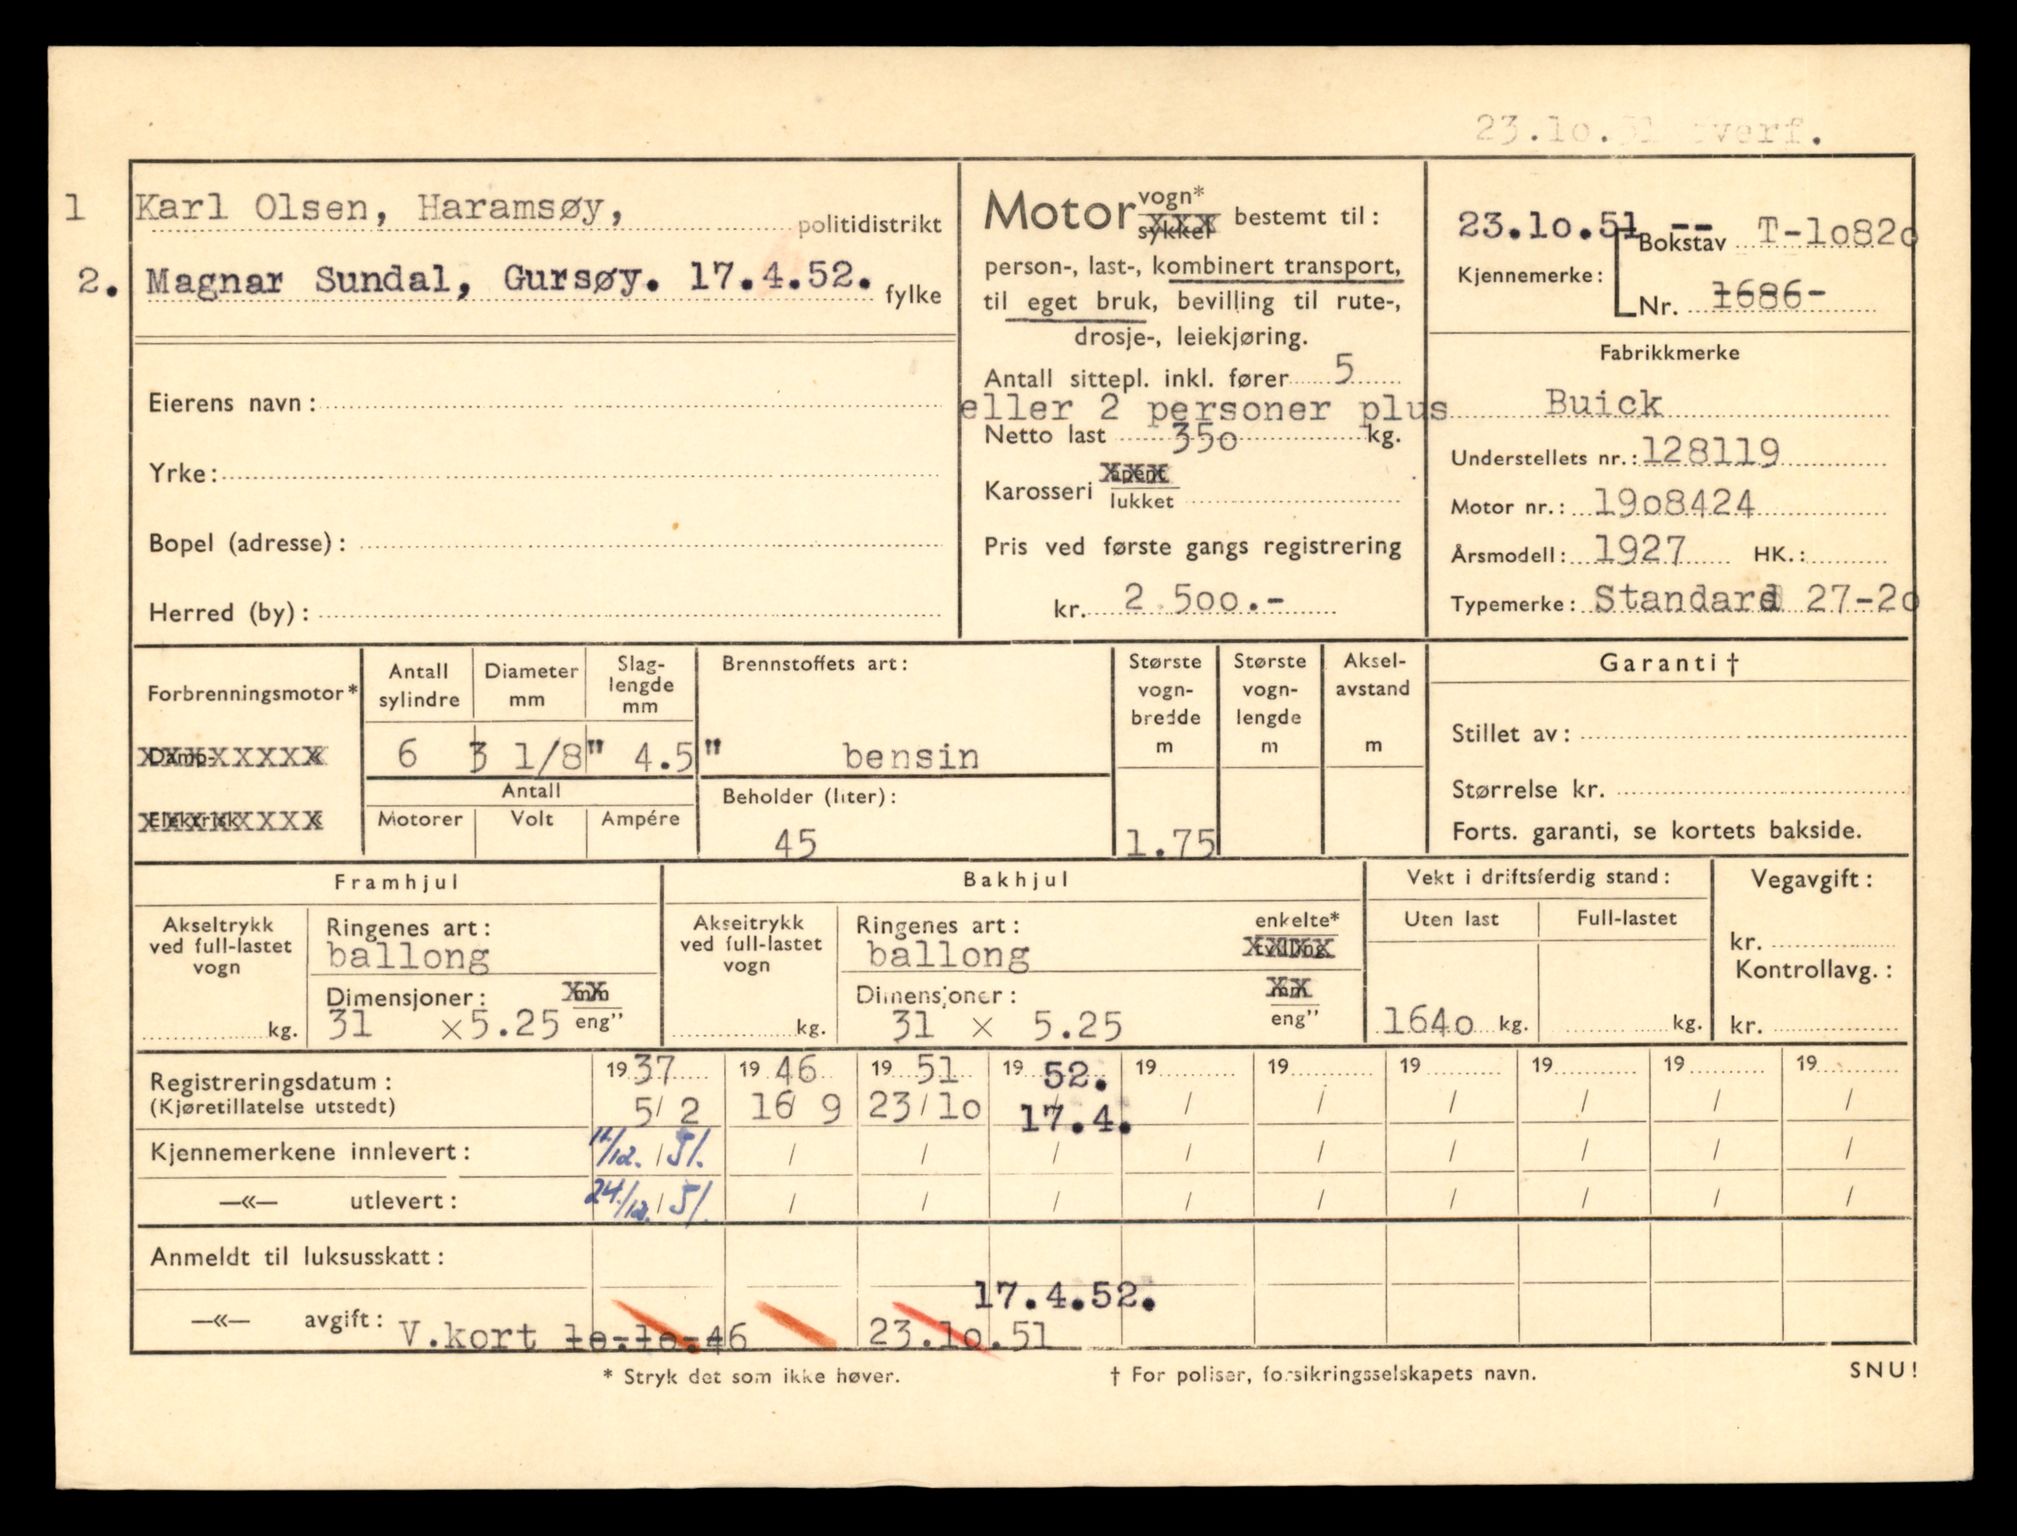 23.10.51 overf.
1 Karl Olsen, Haramsøy, politidistrikt
2. Magnar Sundal, Gursøy. 17.4.52. fylke
Eierens navn:
Yrke:
Bopel (adresse):
Herred (by):
Motor vogn* sykkel bestemt til:
person-, last-, kombinert transport,
til eget bruk, bevilling til rute-,
drosje-, leiekjøring.
Antall sittepl. inkl. fører 5
eller 2 personer plus
Netto last 350 kg.
Karosseri åpent lukket
Pris ved første gangs registrering
kr. 2 500.-
23.10.51 -- Bokstav T-10820
Kjennemerke:
Nr. 1686-
Fabrikkmerke
Buick
Understellets nr.: 128119
Motor nr.: 1908424
Årsmodell: 1927 HK.:
Typemerke: Standard 27-20
Forbrenningsmotor*
Damp-
Elektrisk
Antall sylindre
Diameter mm
Slag-lengde mm
6 3 1/8" 4.5"
Antall
Motorer Volt Ampére
Brennstoffets art:
bensin
Beholder (liter):
45
Største vogn-bredde m
1.75
Største vogn-lengde m
Aksel-avstand m
Garanti†
Stillet av:
Størrelse kr.
Forts. garanti, se kortets bakside.
Framhjul
Akseltrykk ved full-lastet vogn
kg.
Ringenes art:
ballong
Dimensjoner: mm
31 ×5.25 eng"
Bakhjul
Akseltrykk ved full-lastet vogn
kg.
Ringenes art: enkelte*
ballong tvilling
Dimensjoner: mm
31 × 5.25 eng"
Vekt i driftsferdig stand:
Uten last Full-lastet
1640 kg. kg.
Vegavgift:
kr.
Kontrollavg.:
kr.
Registreringsdatum: 1937 1946 1951 1952. 19 19 19 19 19 19
(Kjøretillatelse utstedt) 5/2 16/9 23/10 17.4. / / / / / /
Kjennemerkene innlevert: 11/12. / 51. / / / / / / / / /
—«— utlevert: 24/12. / 51. / / / / / / / / /
Anmeldt til luksusskatt:
17.4.52.
—«— avgift: V.kort 10.10.46 23.10.51
* Stryk det som ikke høver.
† For poliser, forsikringsselskapets navn.
SNU!